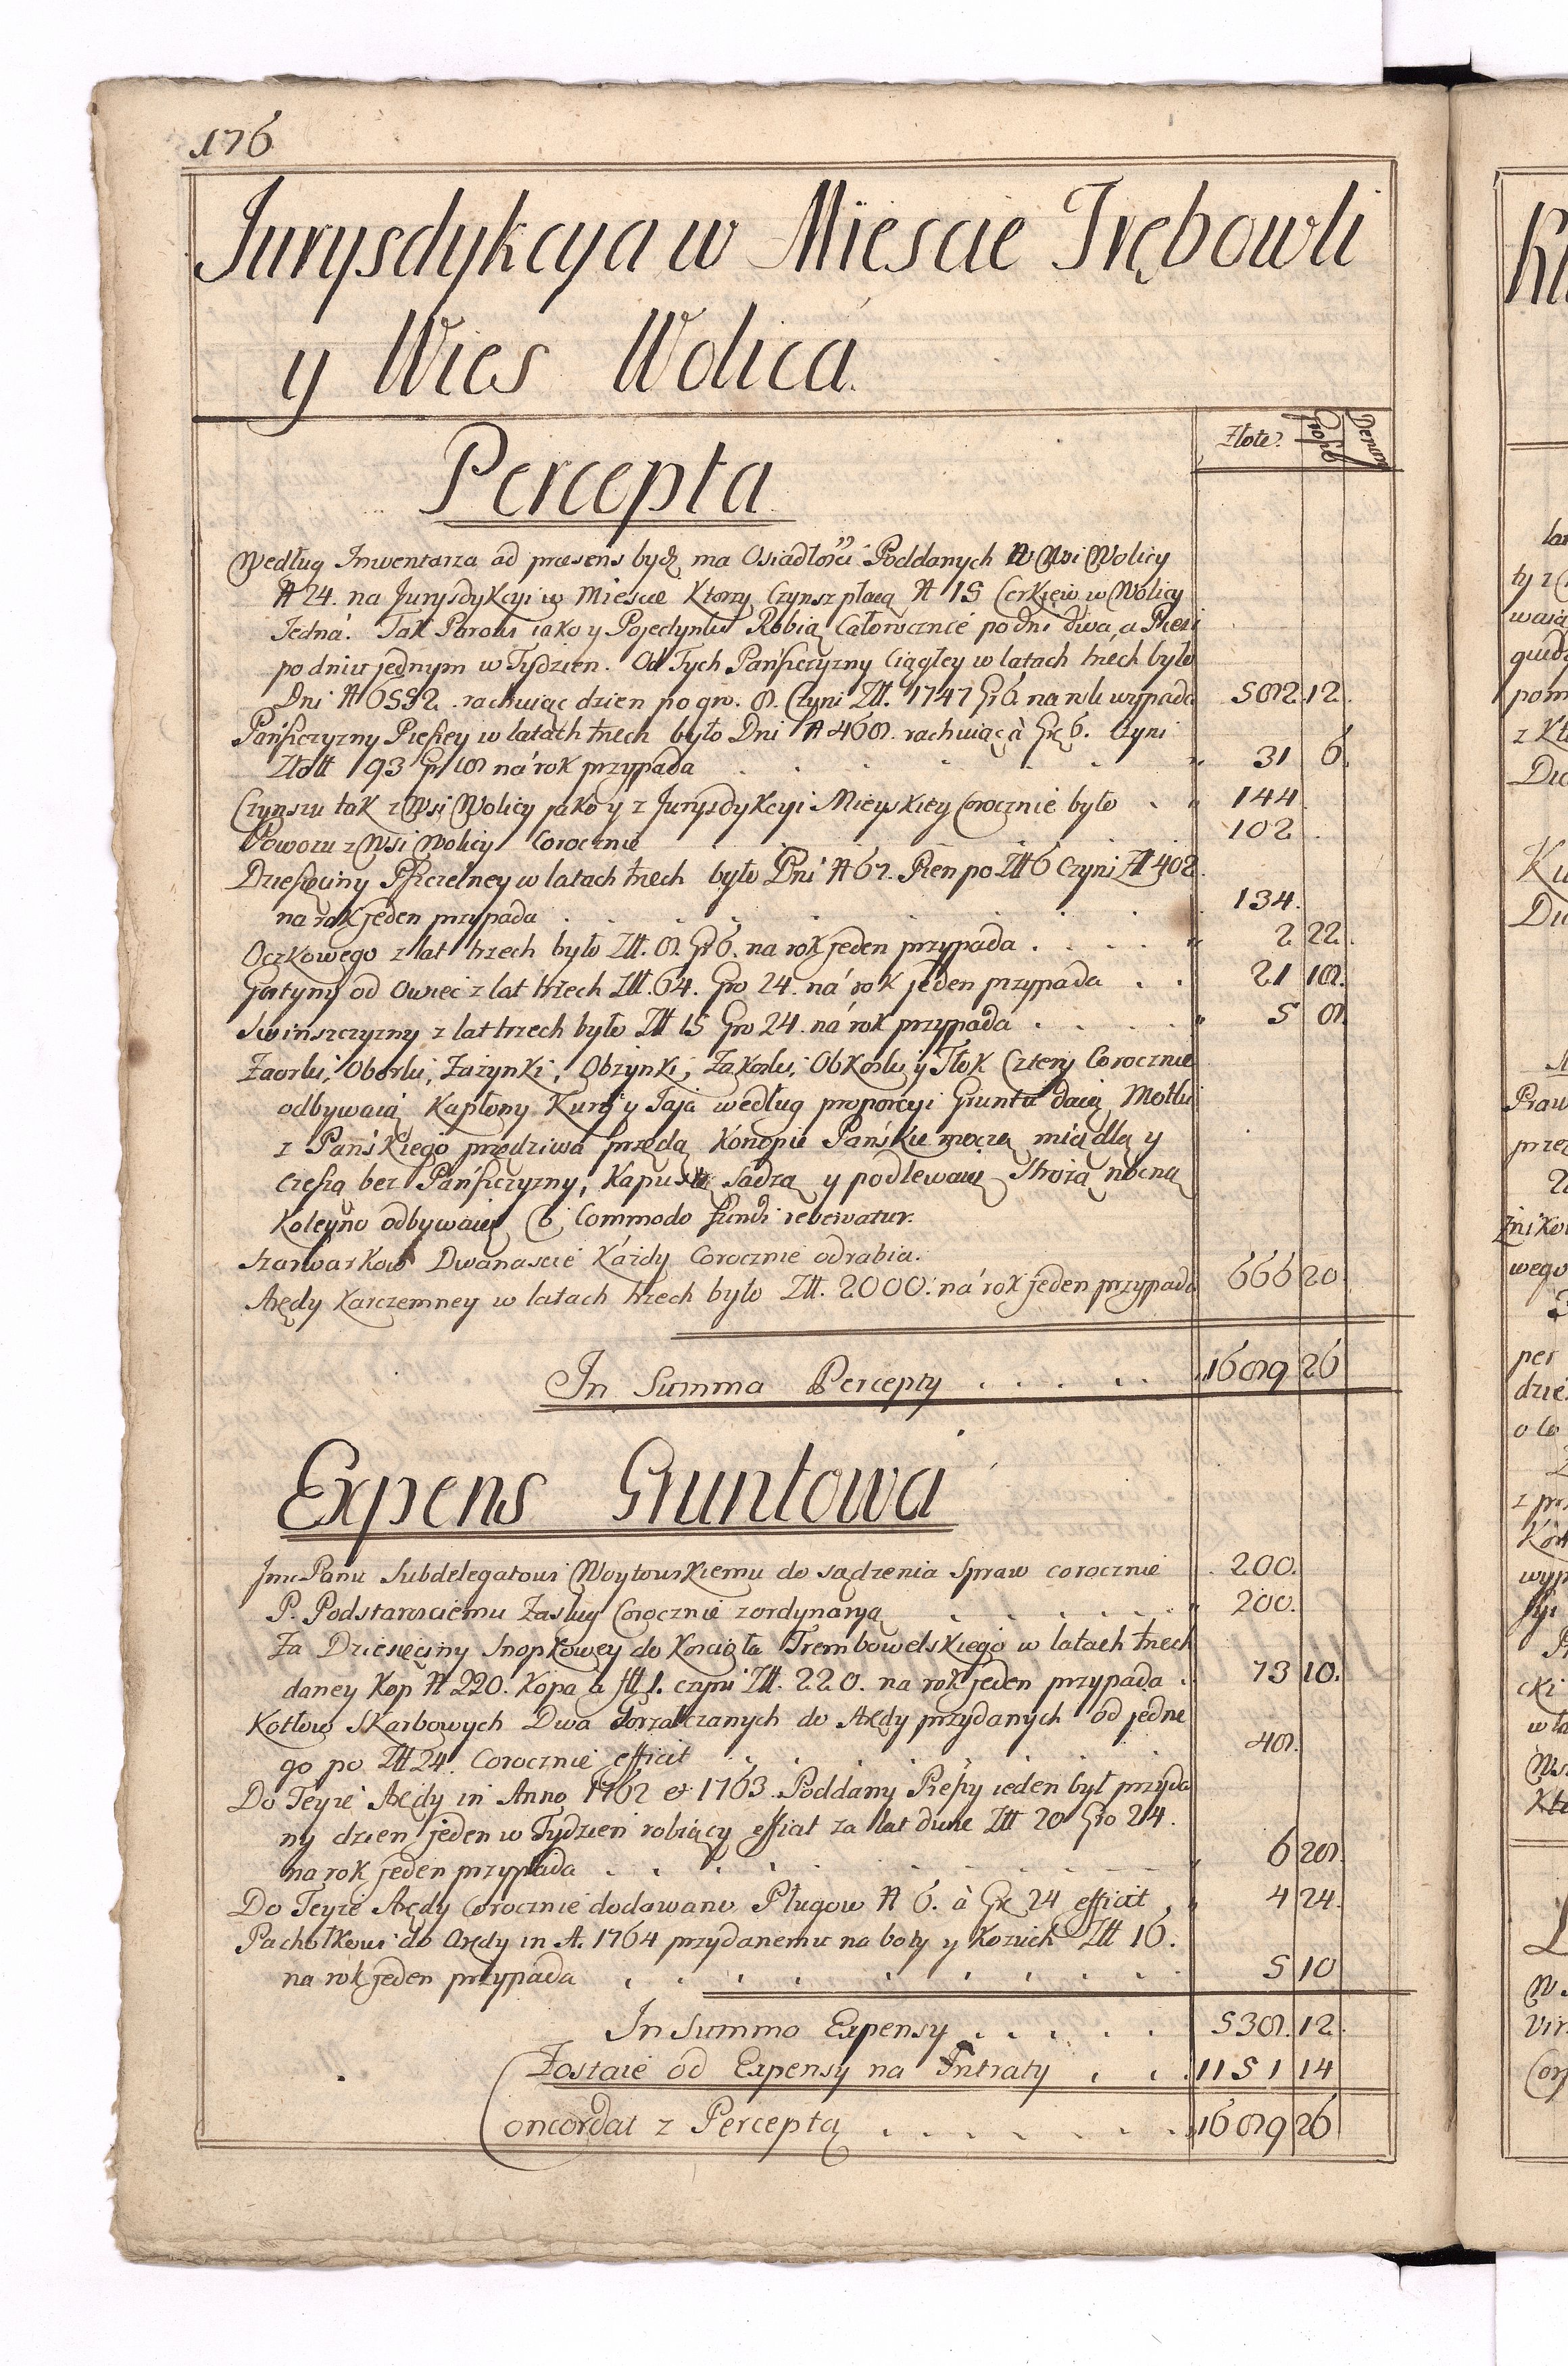 176
Jurysdykcya w Miescie Trębowli
y Wies Wolica.
Percepta
Złote. Grosze Denary
Według Inwentarza ad præsens bydź ma Osiadłości Poddanych w Wsi Wolicy
N 24. na Jurysdykcyi w Miescie Ktorzy Czynsz płacą N 15 Cerkiew w Wolicy
Jedna. Tak Parowi iako y Pojedynki Robią Całorocznie po dni dwa, a Piesi
po dniu jednym w Tydzien. Od Tych Pańszczyzny Ciągłey w latach trzech było
Dni N 6552. rachuiąc dzien po gro. 8. Czyni Złł. 1747 Gr 6 na rok wypada 582 12.
Pańszczyzny Pieszey w latach trzech było Dni N 468. rachuiąc à Gr 6. Czyni
Złott 93 gr 18 na rok przypada . . . . . . 31 6.
Czynszu tak z Wsi Wolicy jako y z Jurysdykcyi Mieyskiey Corocznie było . 144
Powozu z Wsi Wolicy Corocznie . . . . . 102
Dziesięciny Pszczelney w latach trzech było Pni N 67. Pien po Złł 6 Czyni Złł 402.
na rok jeden przypada . . . . . . 134.
Oczkowego z lat trzech było Złł. 8. Gr 6. na rok jeden przypada . . . . 2 22.
Gostyny od Owiec z lat trzech Złł. 64. Gro 24. na rok jeden przypada . . 21 18.
Swinszczyzny z lat trzech było Złł 15 Gro 24. na rok przypada . . . . 5 8
Zaorki, Oborki, Zażynki, Obżynki, Zakoski, Obkoski y Tłok Cztery Corocznie
odbywaią Kapłony Kury y Jaja według proporcyi Gruntu daią, Motki
z Pańskiego przędziwa przędą Konopie Pańskie moczą międlą y
czeszą bez Pańszczyzny, Kapustę sadzą y podlewaią Strożą nocną
Koleyno odbywaią Commodo fundi reservatur.
Szarwarkow Dwanascie Kázdy Corocznie odrabia.
Arędy Karczemney w latach trzech było Złł. 2000. na rok jeden przypada 666 20.
In Summa Percepty . . . . . 1689 26
Expens Gruntowa
Jmc Panu Subdelegatowi Woytowskiemu do sądzenia Spraw corocznie 200.
P. Podstarosciemu Zasług Corocznie z ordynaryą . . . . . . 200.
Za Dziesięciny Snopkowey do Kościoła Trembowelskiego w latach trzech
daney Kop N 220. Kopa à Złł 1. czyni Złł. 220. na rok jeden przypada . 73 10.
Kotłow Skarbowych Dwa Gorzałczanych do Arędy przydanych od jedne
go po Złł 24. Corocznie efficit . . . . . . 48.
Do Teyże Arędy in Anno 1762 et 1763. Poddany Pieszy ieden był przyda
ny dzien jeden w Tydzien robiący efficit za lat dwie Złł 20 Gro 24.
na rok jeden przypada . . . . . . 6 28.
Do Teyże Arędy Corocznie dodawano Pługow N 6. à Gr 24 efficit 4 24.
Pachołkowi do Arędy in A. 1764 przydanemu na boty y Kożuch Złł 16.
na rok jeden przypada . . . . . . . . . 5 10
In Summo Expensy . . . . . 538. 12.
Zostaie od Expensy na Intraty . . . 1151 14
Concordat z Perceptą . . . . . . . 1689 26